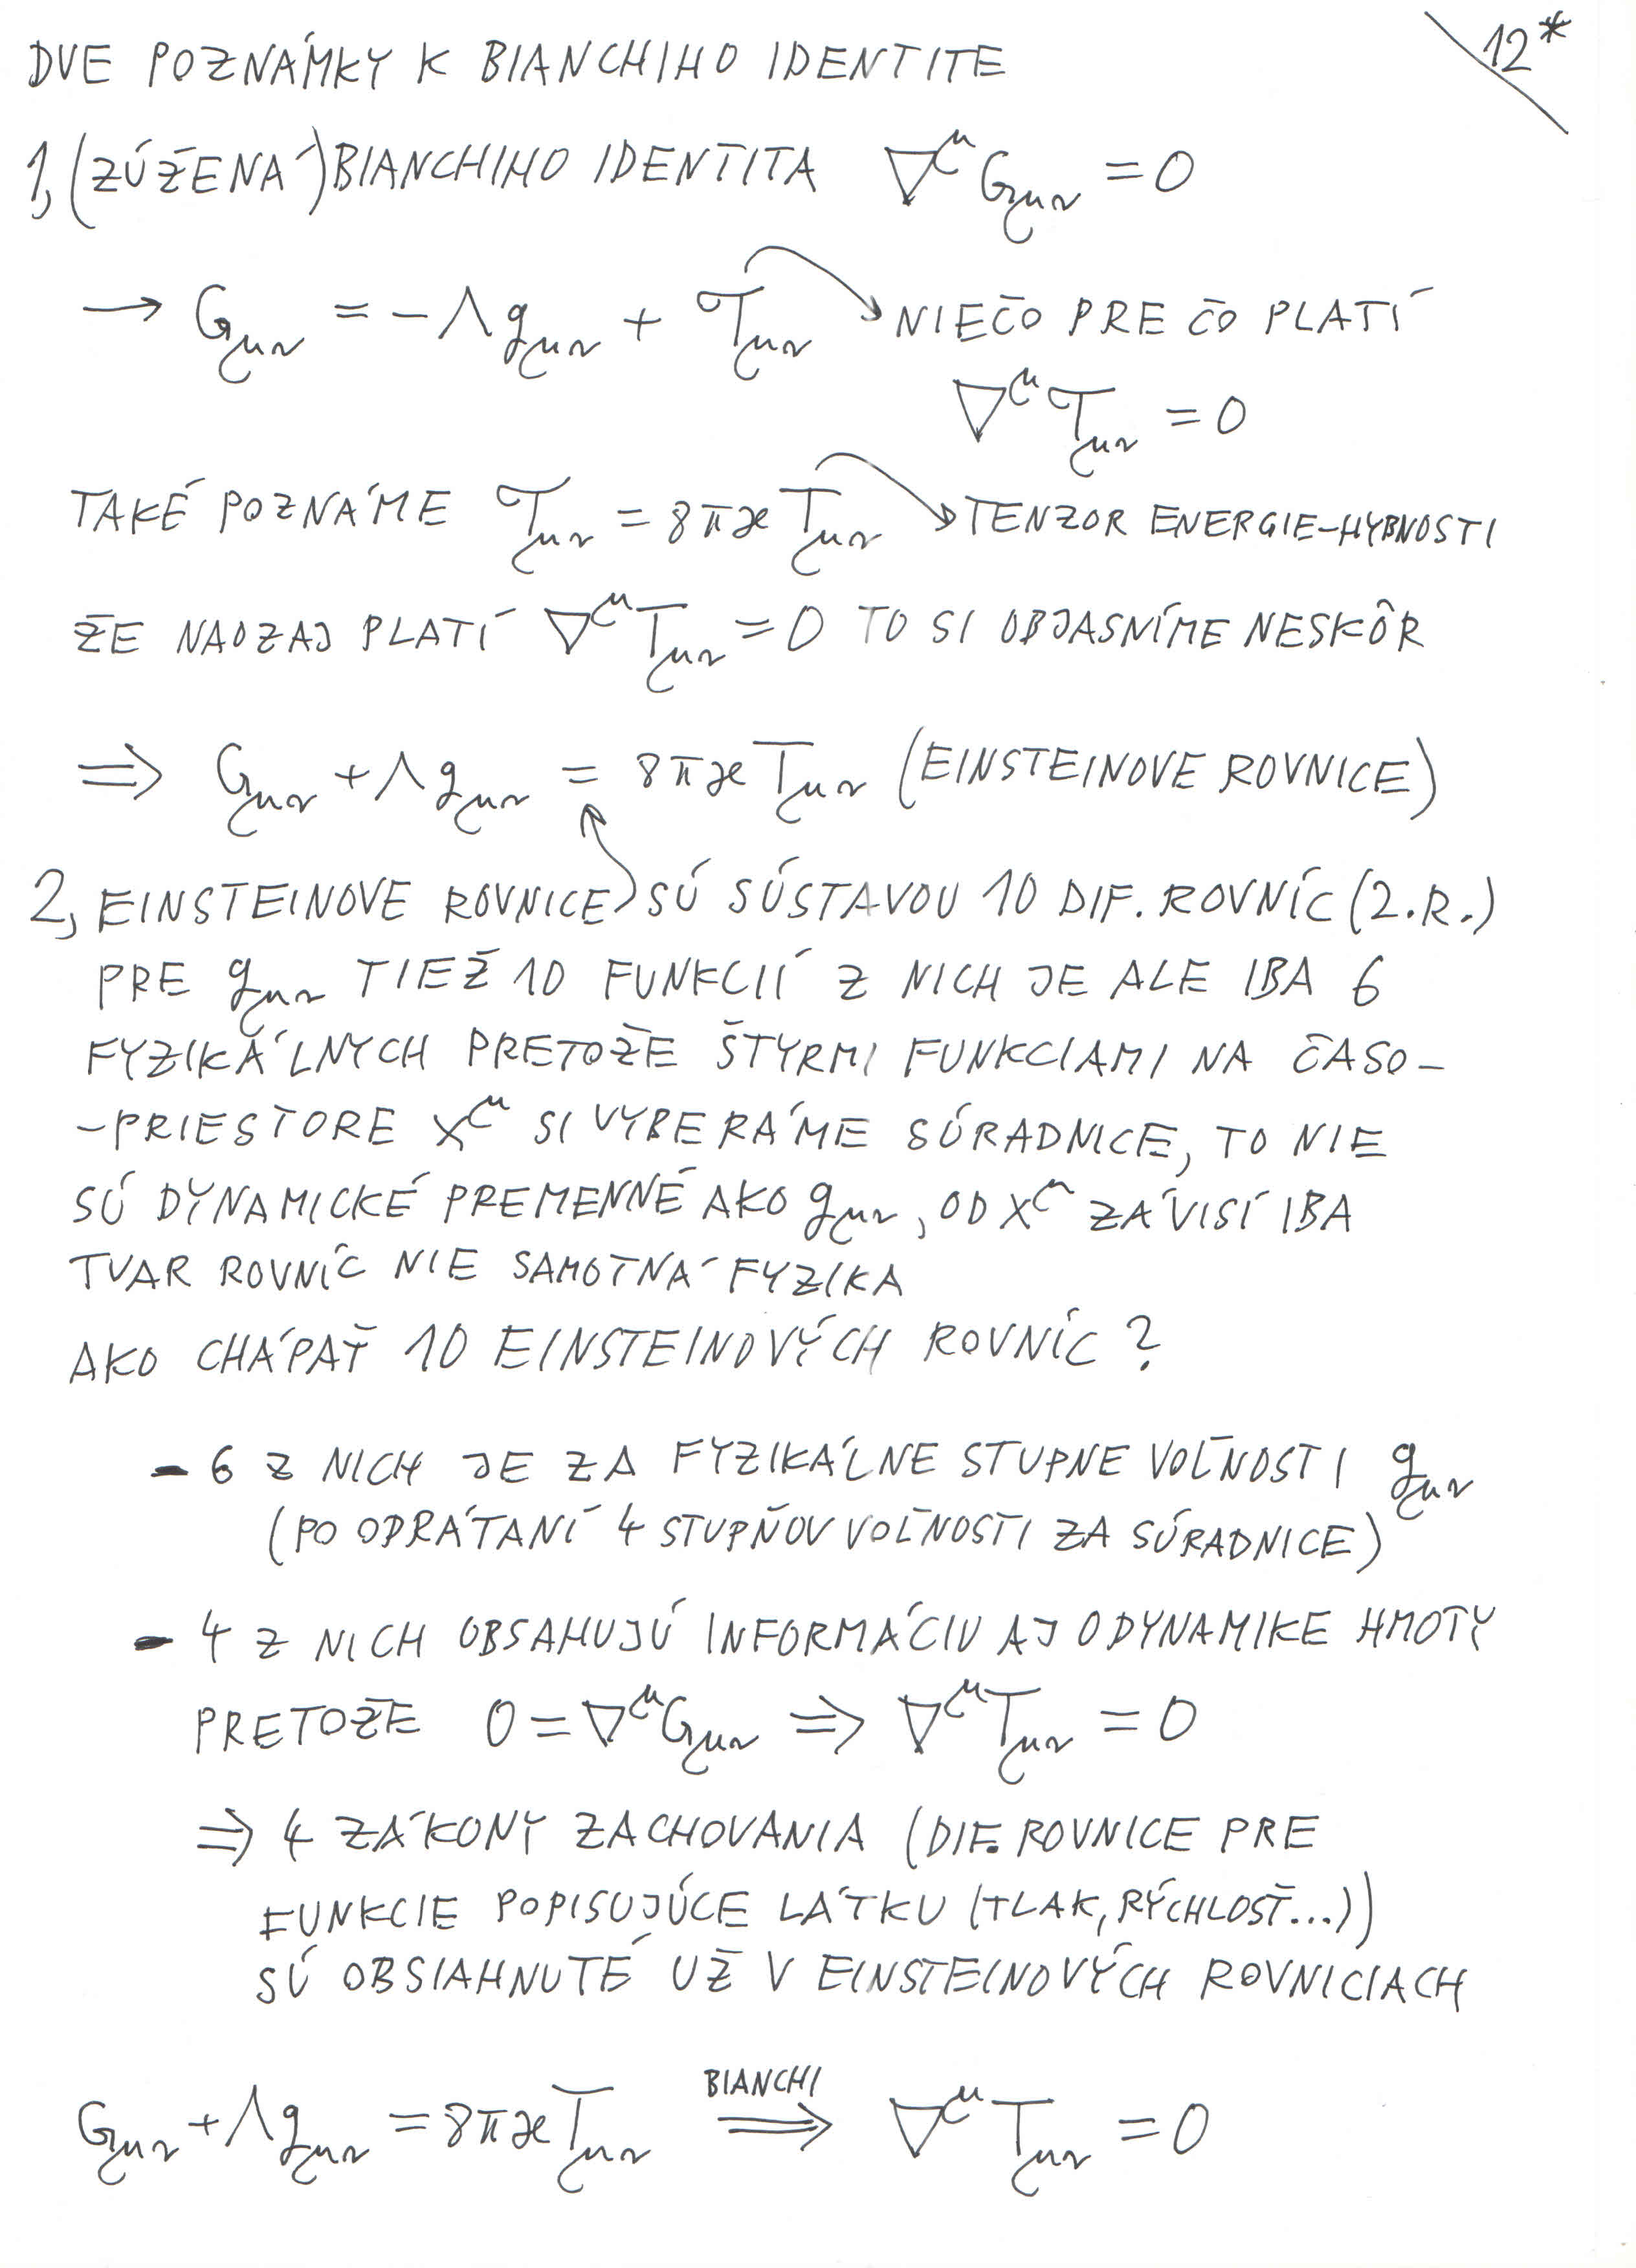 12*
DVE POZNÁMKY K BIANCHIHO IDENTITE
1, (ZÚŽENÁ) BIANCHIHO IDENTITA ∇^μ G_μν = 0
→ G_μν = -Λ g_μν + 𝒯_μν NIEČO PRE ČO PLATÍ
∇^μ 𝒯_μν = 0
TAKÉ POZNÁME 𝒯_μν = 8πϰ T_μν TENZOR ENERGIE-HYBNOSTI
ŽE NAOZAJ PLATÍ ∇^μ T_μν = 0 TO SI OBJASNÍME NESKÔR
⇒ G_μν + Λ g_μν = 8πϰ T_μν (EINSTEINOVE ROVNICE)
2, EINSTEINOVE ROVNICE SÚ SÚSTAVOU 10 DIF. ROVNÍC (2.R.)
PRE g_μν TIEŽ 10 FUNKCIÍ Z NICH JE ALE IBA 6
FYZIKÁLNYCH PRETOŽE ŠTYRMI FUNKCIAMI NA ČASO-
-PRIESTORE x^μ SI VYBERÁME SÚRADNICE, TO NIE
SÚ DYNAMICKÉ PREMENNÉ AKO g_μν, OD x^μ ZÁVISÍ IBA
TVAR ROVNÍC NIE SAMOTNÁ FYZIKA
AKO CHÁPAŤ 10 EINSTEINOVÝCH ROVNÍC ?
- 6 Z NICH JE ZA FYZIKÁLNE STUPNE VOĽNOSTI g_μν
(PO ODRÁTANÍ 4 STUPŇOV VOĽNOSTI ZA SÚRADNICE)
- 4 Z NICH OBSAHUJÚ INFORMÁCIU AJ O DYNAMIKE HMOTY
PRETOŽE 0 = ∇^μ G_μν ⇒ ∇^μ T_μν = 0
⇒ 4 ZÁKONY ZACHOVANIA (DIF. ROVNICE PRE
FUNKCIE POPISUJÚCE LÁTKU (TLAK, RÝCHLOSŤ...))
SÚ OBSIAHNUTÉ UŽ V EINSTEINOVÝCH ROVNICIACH
G_μν + Λ g_μν = 8πϰ T_μν BIANCHI ⟹ ∇^μ T_μν = 0